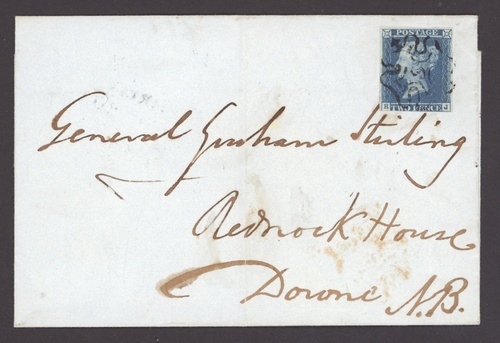 POSTAGE
TWO PENCE
General Graham Stirling
Rednock House
Doune N.B.